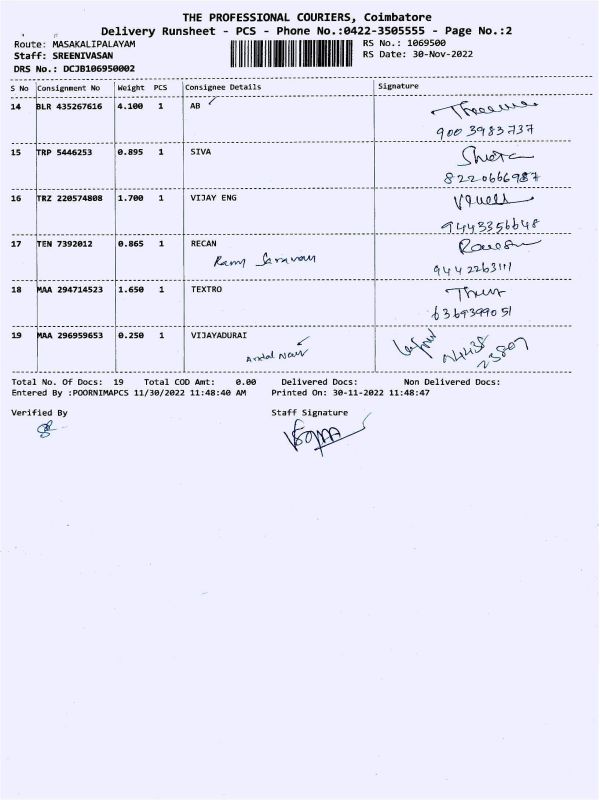 THE PROFESSIONAL COURIERS, Coimbatore
Delivery Runsheet - PCS - Phone No.:0422-3505555 - Page No.:2
Route: MASAKALIPALAYAM RS No.: 1069500
Staff: SREENIVASAN RS Date: 30-Nov-2022
DRS No.: DCJB106950002
S No Consignment No Weight PCS Consignee Details Signature
14 BLR 435267616 4.100 1 AB
900 3983737
15 TRP 5446253 0.895 1 SIVA
8220666987
16 TRZ 220574808 1.700 1 VIJAY ENG
9443356648
17 TEN 7392012 0.865 1 RECAN
9442263111
18 MAA 294714523 1.650 1 TEXTRO
6369399051
19 MAA 296959653 0.250 1 VIJAYADURAI
Total No. Of Docs: 19 Total COD Amt: 0.00 Delivered Docs: Non Delivered Docs:
Entered By :POORNIMAPCS 11/30/2022 11:48:40 AM Printed On: 30-11-2022 11:48:47
Verified By Staff Signature